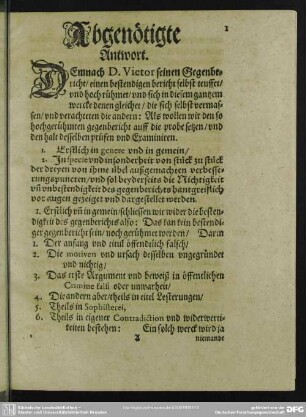 1
Abgenötigte
Antwort.
DEmnach D. Victor seinen Gegenbe-
richt/ einen bestendigen bericht selbst teuffet/
vnd hoch rühmet/ vnd sich in diesem gantzem
wercke denen gleichet/ die sich selbst vermas-
sen/ vnd verachteten die andern: Als wollen wir den so
hochgerühmten gegenbericht auff die probe setzen/ vnd
den halt desselben prüfen vnd Examiniren.
1. Erstlich in genere vnd in gemein/
2. In specie vnd insonderheit von stück zu stück
der dreyen von ihme übel auffgemachten verbesse-
rungspuncten/ vnd sol beyderseits die Nichtigkeit
vñ vnbestendigkeit des gegenberichts handgreiflich
vor augen gezeiget vnd dargestellet werden.
1. Erstlich vñ in gemein/ schliessen wir wider die besten-
digkeit des gegenberichts also: Das kan kein bestendi-
ger gegenbericht sein/ noch gerühmet werden/ Darin
1. Der anfang vnd einil öffendlich falsch/
2. Die motiven vnd vrsach desselben vngegründet
vnd nichtig/
3. Das erste Argument vnd beweiß in öffentlichen
Crimine falsi oder vnwarheit/
4. Die andern aber/ theils in eitel Lesterungen/
5. Theils in Sophisterei,
6. Theils in eigener Contradiction vnd widerwerti-
keiten bestehen: Ein solch werck wird ja
niemandt